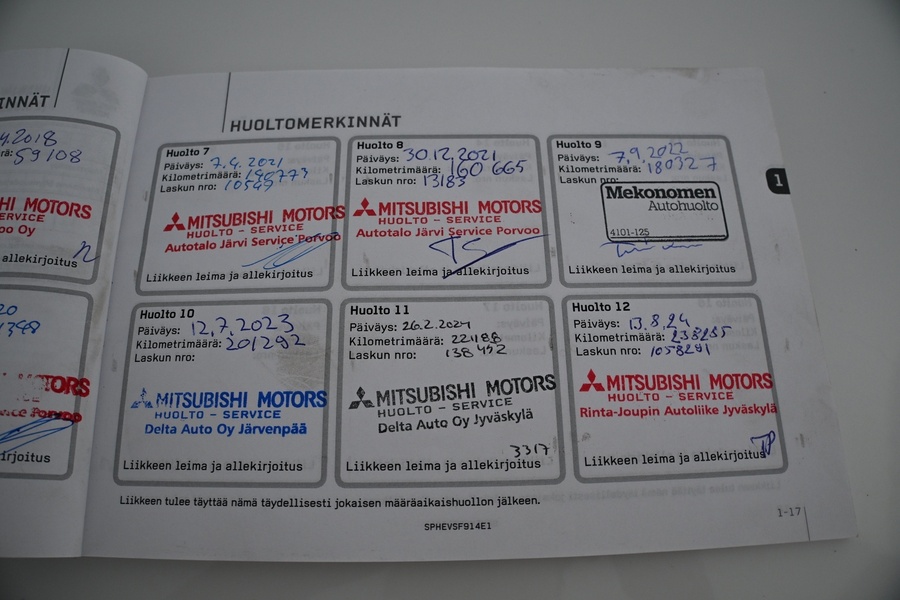 INNÄT
.2018
rä: 59108
MOTORS
SERVICE
oo Oy
allekirjoitus
20
TORS
vice Porvoo
irjoitus
HUOLTOMERKINNÄT
Huolto 7
Päiväys: 7.4.2021
Kilometrimäärä:
Laskun nro:
MITSUBISHI MOTORS
HUOLTO - SERVICE
Autotalo Järvi Service Porvoo
Liikkeen leima ja allekirjoitus
Huolto 8
Päiväys: 30.12.2021
Kilometrimäärä: 160 665
Laskun nro: 13183
MITSUBISHI MOTORS
HUOLTO - SERVICE
Autotalo Järvi Service Porvoo
Liikkeen leima ja allekirjoitus
Huolto 9
Päiväys: 7.9.2022
Kilometrimäärä: 180327
Laskun nro:
Mekonomen
Autohuolto
4101-125
Liikkeen leima ja allekirjoitus
Huolto 10
Päiväys: 12.7.2023
Kilometrimäärä: 201292
Laskun nro:
MITSUBISHI MOTORS
HUOLTO - SERVICE
Delta Auto Oy Järvenpää
Liikkeen leima ja allekirjoitus
Huolto 11
Päiväys: 26.2.2024
Kilometrimäärä: 221188
Laskun nro: 138452
MITSUBISHI MOTORS
HUOLTO - SERVICE
Delta Auto Oy Jyväskylä
3317
Liikkeen leima ja allekirjoitus
Huolto 12
Päiväys: 13.8.24
Kilometrimäärä: 233235
Laskun nro: 1058291
MITSUBISHI MOTORS
HUOLTO - SERVICE
Rinta-Joupin Autoliike Jyväskylä
Liikkeen leima ja allekirjoitus
Liikkeen tulee täyttää nämä täydellisesti jokaisen määräaikaishuollon jälkeen.
SPHEVSF914E1
1-17
1